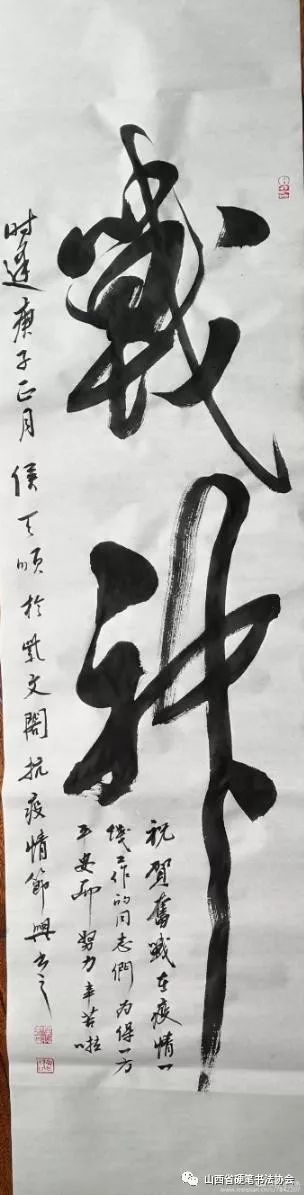 戰神
祝賀奮戰在疫情一
綫工作的同志們为得一方
平安而努力辛苦啦
时逢庚子正月侯天顺於文閣抗疫情節興书之
山西省硬笔书法协会